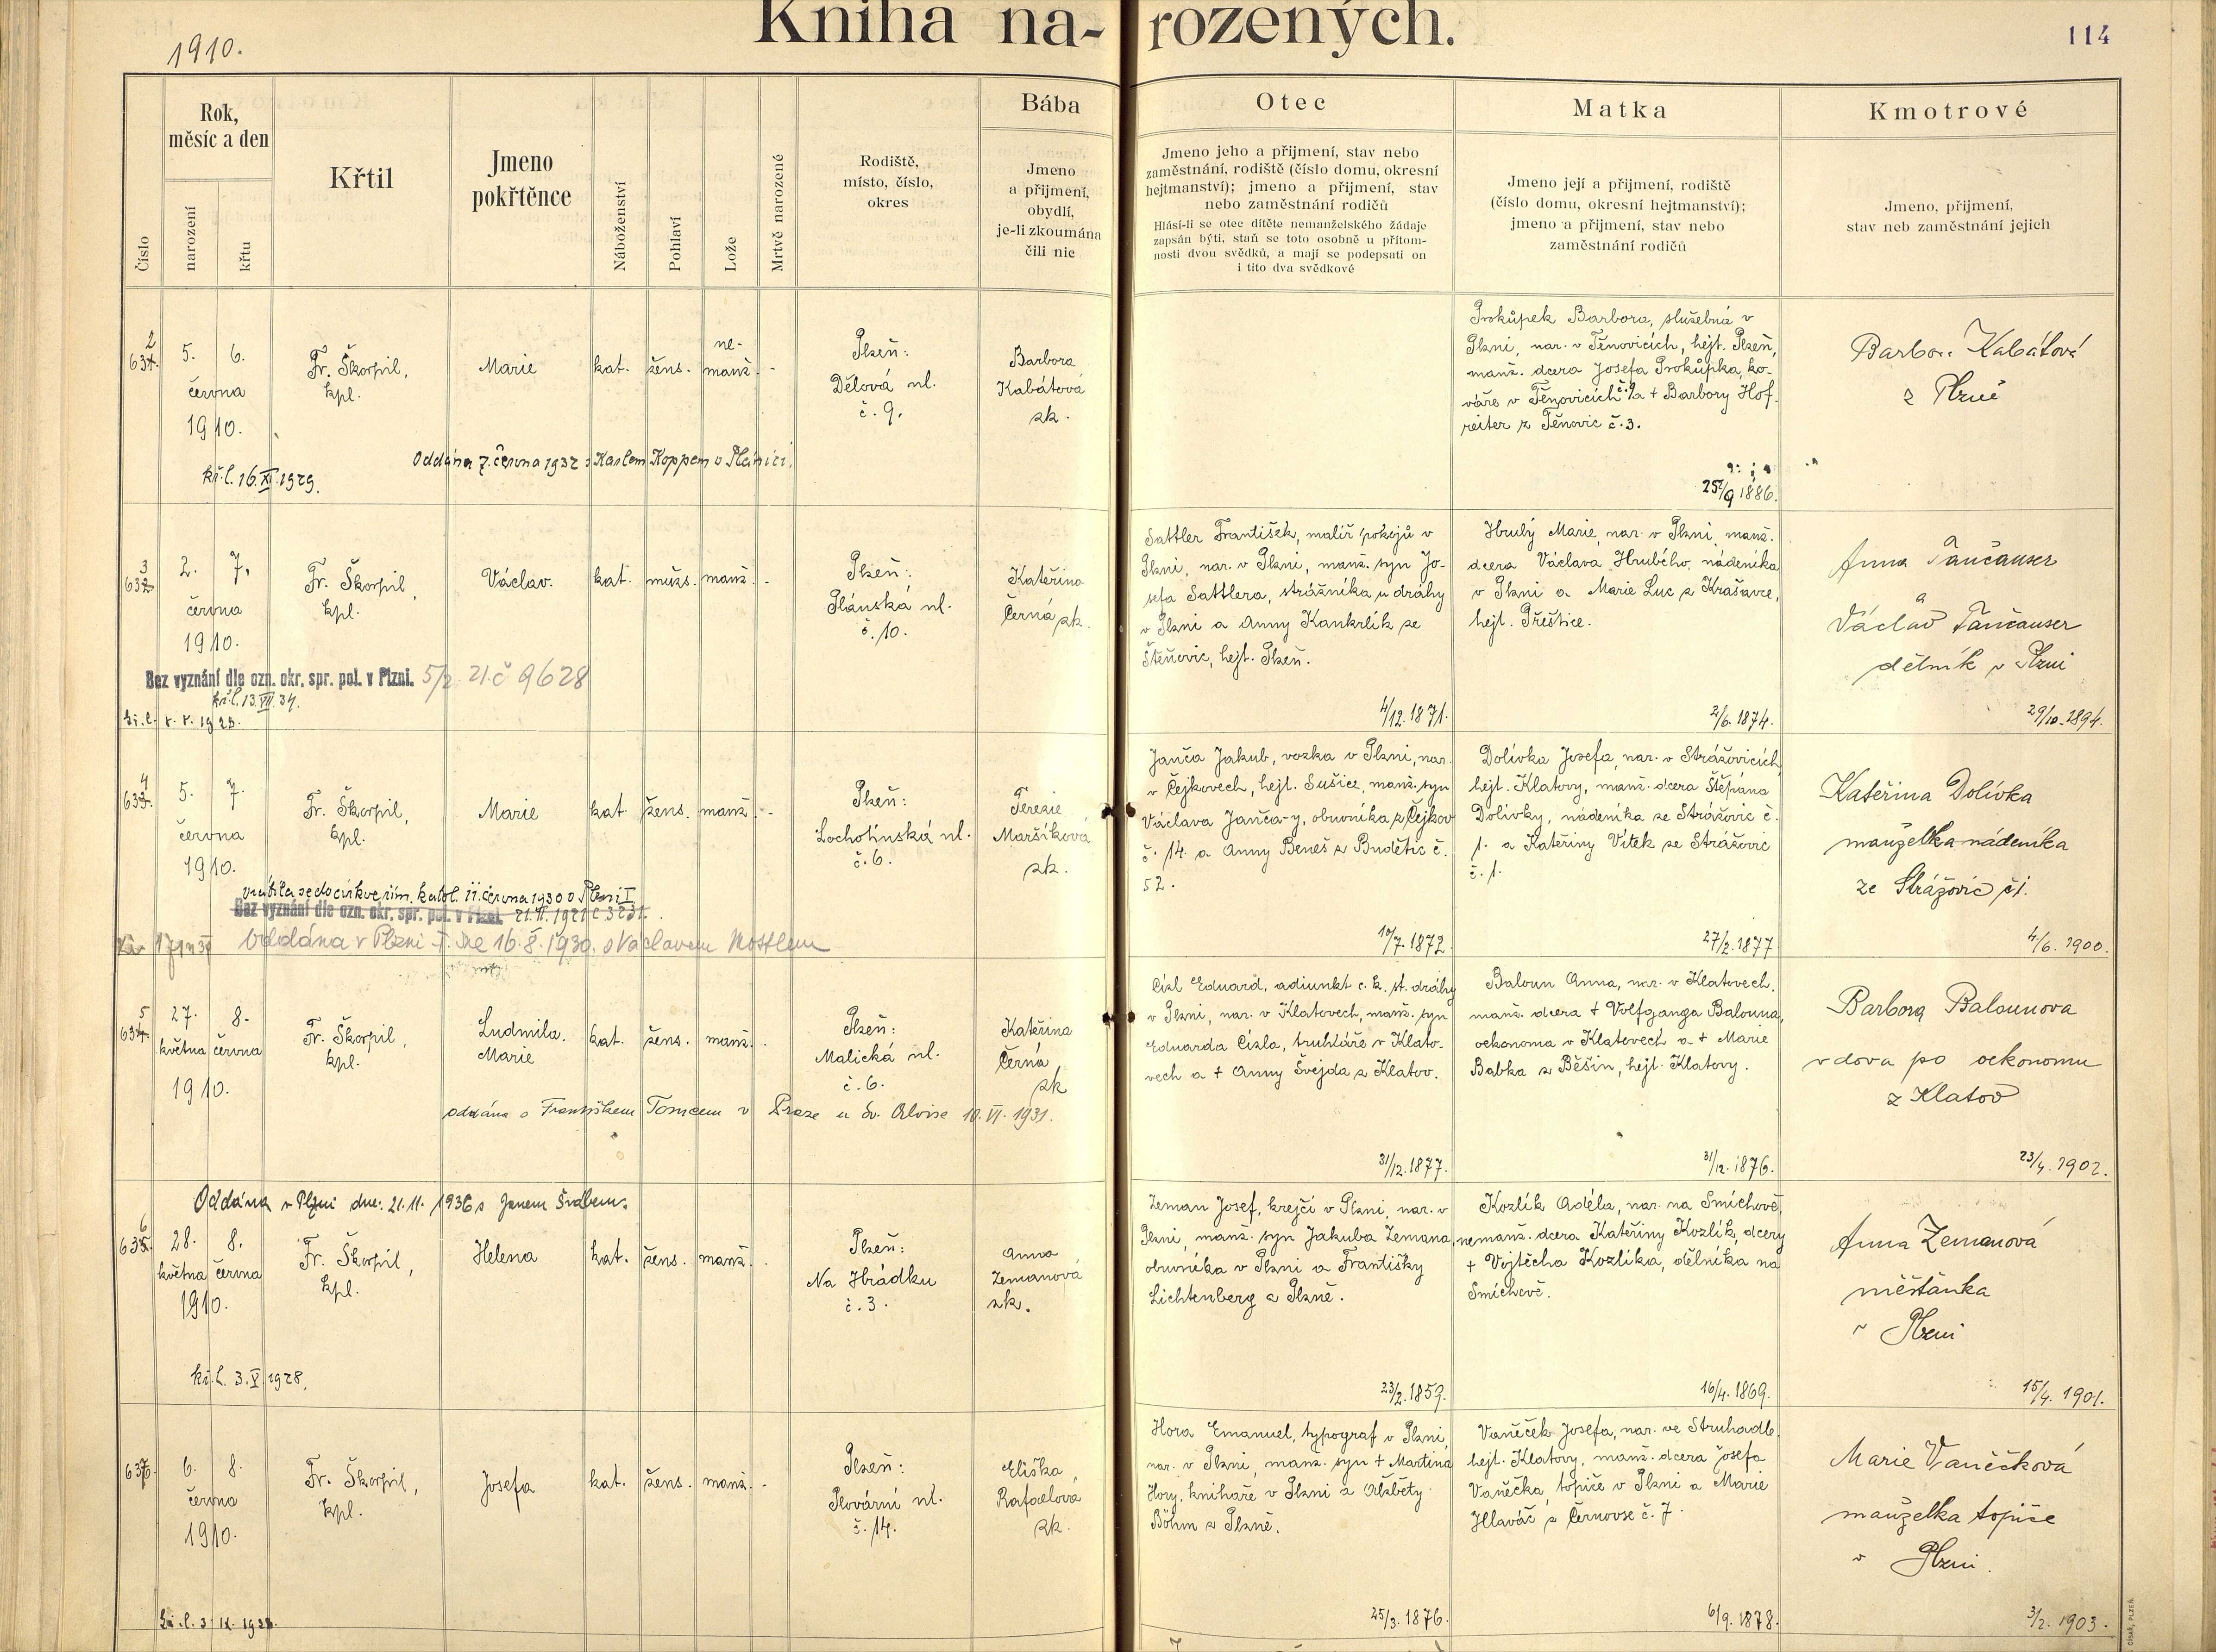 Kniha narozených.
1910.
114
Číslo
Rok, měsíc a den
narození
křtu
Křtil
Jmeno pokřtěnce
Náboženství
Pohlaví
Lože
Mrtvě narozené
Rodiště, místo, číslo, okres
Bába
Jmeno a přijmení, obydlí, je-li zkoumána čili nic
Otec
Jmeno jeho a přijmení, stav nebo
zaměstnání, rodiště (číslo domu, okresní
hejtmanství); jmeno a přijmení, stav
nebo zaměstnání rodičů
Hlásí-li se otec dítěte nemanželského žádaje
zapsán býti, staň se toto osobně u přítom-
nosti dvou svědků, a mají se podepsati on
i tito dva svědkové
Matka
Jmeno její a přijmení, rodiště
(číslo domu, okresní hejtmanství);
jmeno a přijmení, stav nebo
zaměstnání rodičů
Kmotrové
Jmeno, přijmení,
stav neb zaměstnání jejich
5. 6.
června
1910.
Fr. Škorpil,
kpl.
Marie
kat.
žens.
ne-
manž.
Plzeň:
Dělová ul.
č. 9.
Barbora
Kabátová
zk.
Prokůpek Barbora, služebná v
Plzni, nar. v Těnovicích, hejt. Plzeň,
manž. dcera Josefa Prokůpka, ko-
váře v Těnovicích č. 9 a + Barbory Hof-
reiter z Těnovic č. 3.
25/9 1886.
Kabátová
z Plzně
Oddána 7. června 1932 s Karlem Koppem v Plánici.
kř. l. 16.XI.1929.
2. 7.
června
1910.
Fr. Škorpil,
kpl.
Václav.
kat.
mužs.
manž.
Plzeň:
Plánská ul.
č. 10.
Kateřina
Černá zk.
Sattler František, malíř pokojů v
Plzni, nar. v Plzni, manž. syn Jo-
sefa Sattlera, strážníka u dráhy
v Plzni a Anny Kankrlík ze
Štěnovic, hejt. Plzeň.
4/12. 1871.
Hrubý Marie, nar. v Plzni, manž.
dcera Václava Hrubého, nádeníka
v Plzni a Marie Luc z Krašovce,
hejt. Přeštice.
2/6. 1874.
Anna
Václav
dělník v Plzni
29/10. 1894.
Bez vyznání dle ozn. okr. spr. pol. v Plzni. 5/2 21. č 9628
kř. l. 13.VII.34.
5. 7.
června
1910.
Fr. Škorpil,
kpl.
Marie
kat.
žens.
manž.
Plzeň:
Lochotínská ul.
č. 6.
Terezie
Maršíková
zk.
Janča Jakub, vozka v Plzni, nar.
v Čejkovech, hejt. Sušice, manž. syn
Václava Janča-y, obuvníka z Čejkov
č. 14. a Anny Beneš z Budětic č.
52.
10/7. 1872.
Dolívka Josefa, nar. v Strážovicích,
hejt. Klatovy, manž. dcera Štěpána
Dolívky, nádeníka ze Strážovic č.
1. a Kateřiny Vítek ze Strážovic
č. 1.
27/2. 1877.
Kateřina Dolívka
manželka nádeníka
ze Strážovic č 1.
4/6. 1900.
vrátila se do církve řím. katol. 11. června 1930 v Plzni I
Bez vyznání dle ozn. okr. spr. pol. v Plzni. 21. II. 1921 č 3231.
Oddána v Plzni I. dne 16. 8. 1930. s Václavem
27. 8.
května června
1910.
Fr. Škorpil,
kpl.
Ludmila.
Marie
kat.
žens.
manž.
Plzeň:
Malická ul.
č. 6.
Kateřina
Černá
zk
Cízl Eduard, adjunkt c. k. st. dráhy
v Plzni, nar. v Klatovech, manž. syn
Eduarda Cízla, truhláře v Klato-
vech a + Anny Švejda z Klatov.
31/12. 1877.
Baloun Anna, nar. v Klatovech,
manž. dcera + Volfganga Balouna,
oekonoma v Klatovech a + Marie
Babka z Běšin, hejt. Klatovy.
31/12. 1876.
Barbora Balounova
vdova po oekonomu
z Klatov
23/4. 1902.
oddána s Františkem Tomcem v Praze u Sv. Aloise 10. VI. 1931.
Oddána v Plzni dne: 21. 11. 1936 s Janem
28. 8.
května června
1910.
Fr. Škorpil,
kpl.
Helena
kat.
žens.
manž.
Plzeň:
Na Hrádku
č. 3.
Anna
Zemanová
zk.
Zeman Josef, krejčí v Plzni, nar. v
Plzni, manž. syn Jakuba Zemana,
obuvníka v Plzni a Františky
Lichtenberg z Plzně.
23/2. 1859.
Kozlík Adéla, nar. na Smíchově,
nemanž. dcera Kateřiny Kozlík, dcery
+ Vojtěcha Kozlíka, dělníka na
Smíchově.
16/4. 1869.
Anna Zemanová
měšťanka
v Plzni
15/4. 1901.
kř. l. 3. V. 1928.
6. 8.
června
1910.
Fr. Škorpil,
kpl.
Josefa
kat.
žens.
manž.
Plzeň:
Plovární ul.
č. 14.
Eliška
Rafaelová
zk.
Hora Emanuel, typograf v Plzni,
nar. v Plzni, manž. syn + Martina
Hory, knihaře v Plzni a Alžběty
Böhm z Plzně.
25/3. 1876.
Vaněček Josefa, nar. ve Struhadle,
hejt. Klatovy, manž. dcera Josefa
Vaněčka, topiče v Plzni a Marie
Hlaváč z Černovse č. 7.
6/9. 1878.
Marie Vaněčková
manželka topiče
v Plzni.
3/2. 1903.
CÍSAŘ, PLZEŇ